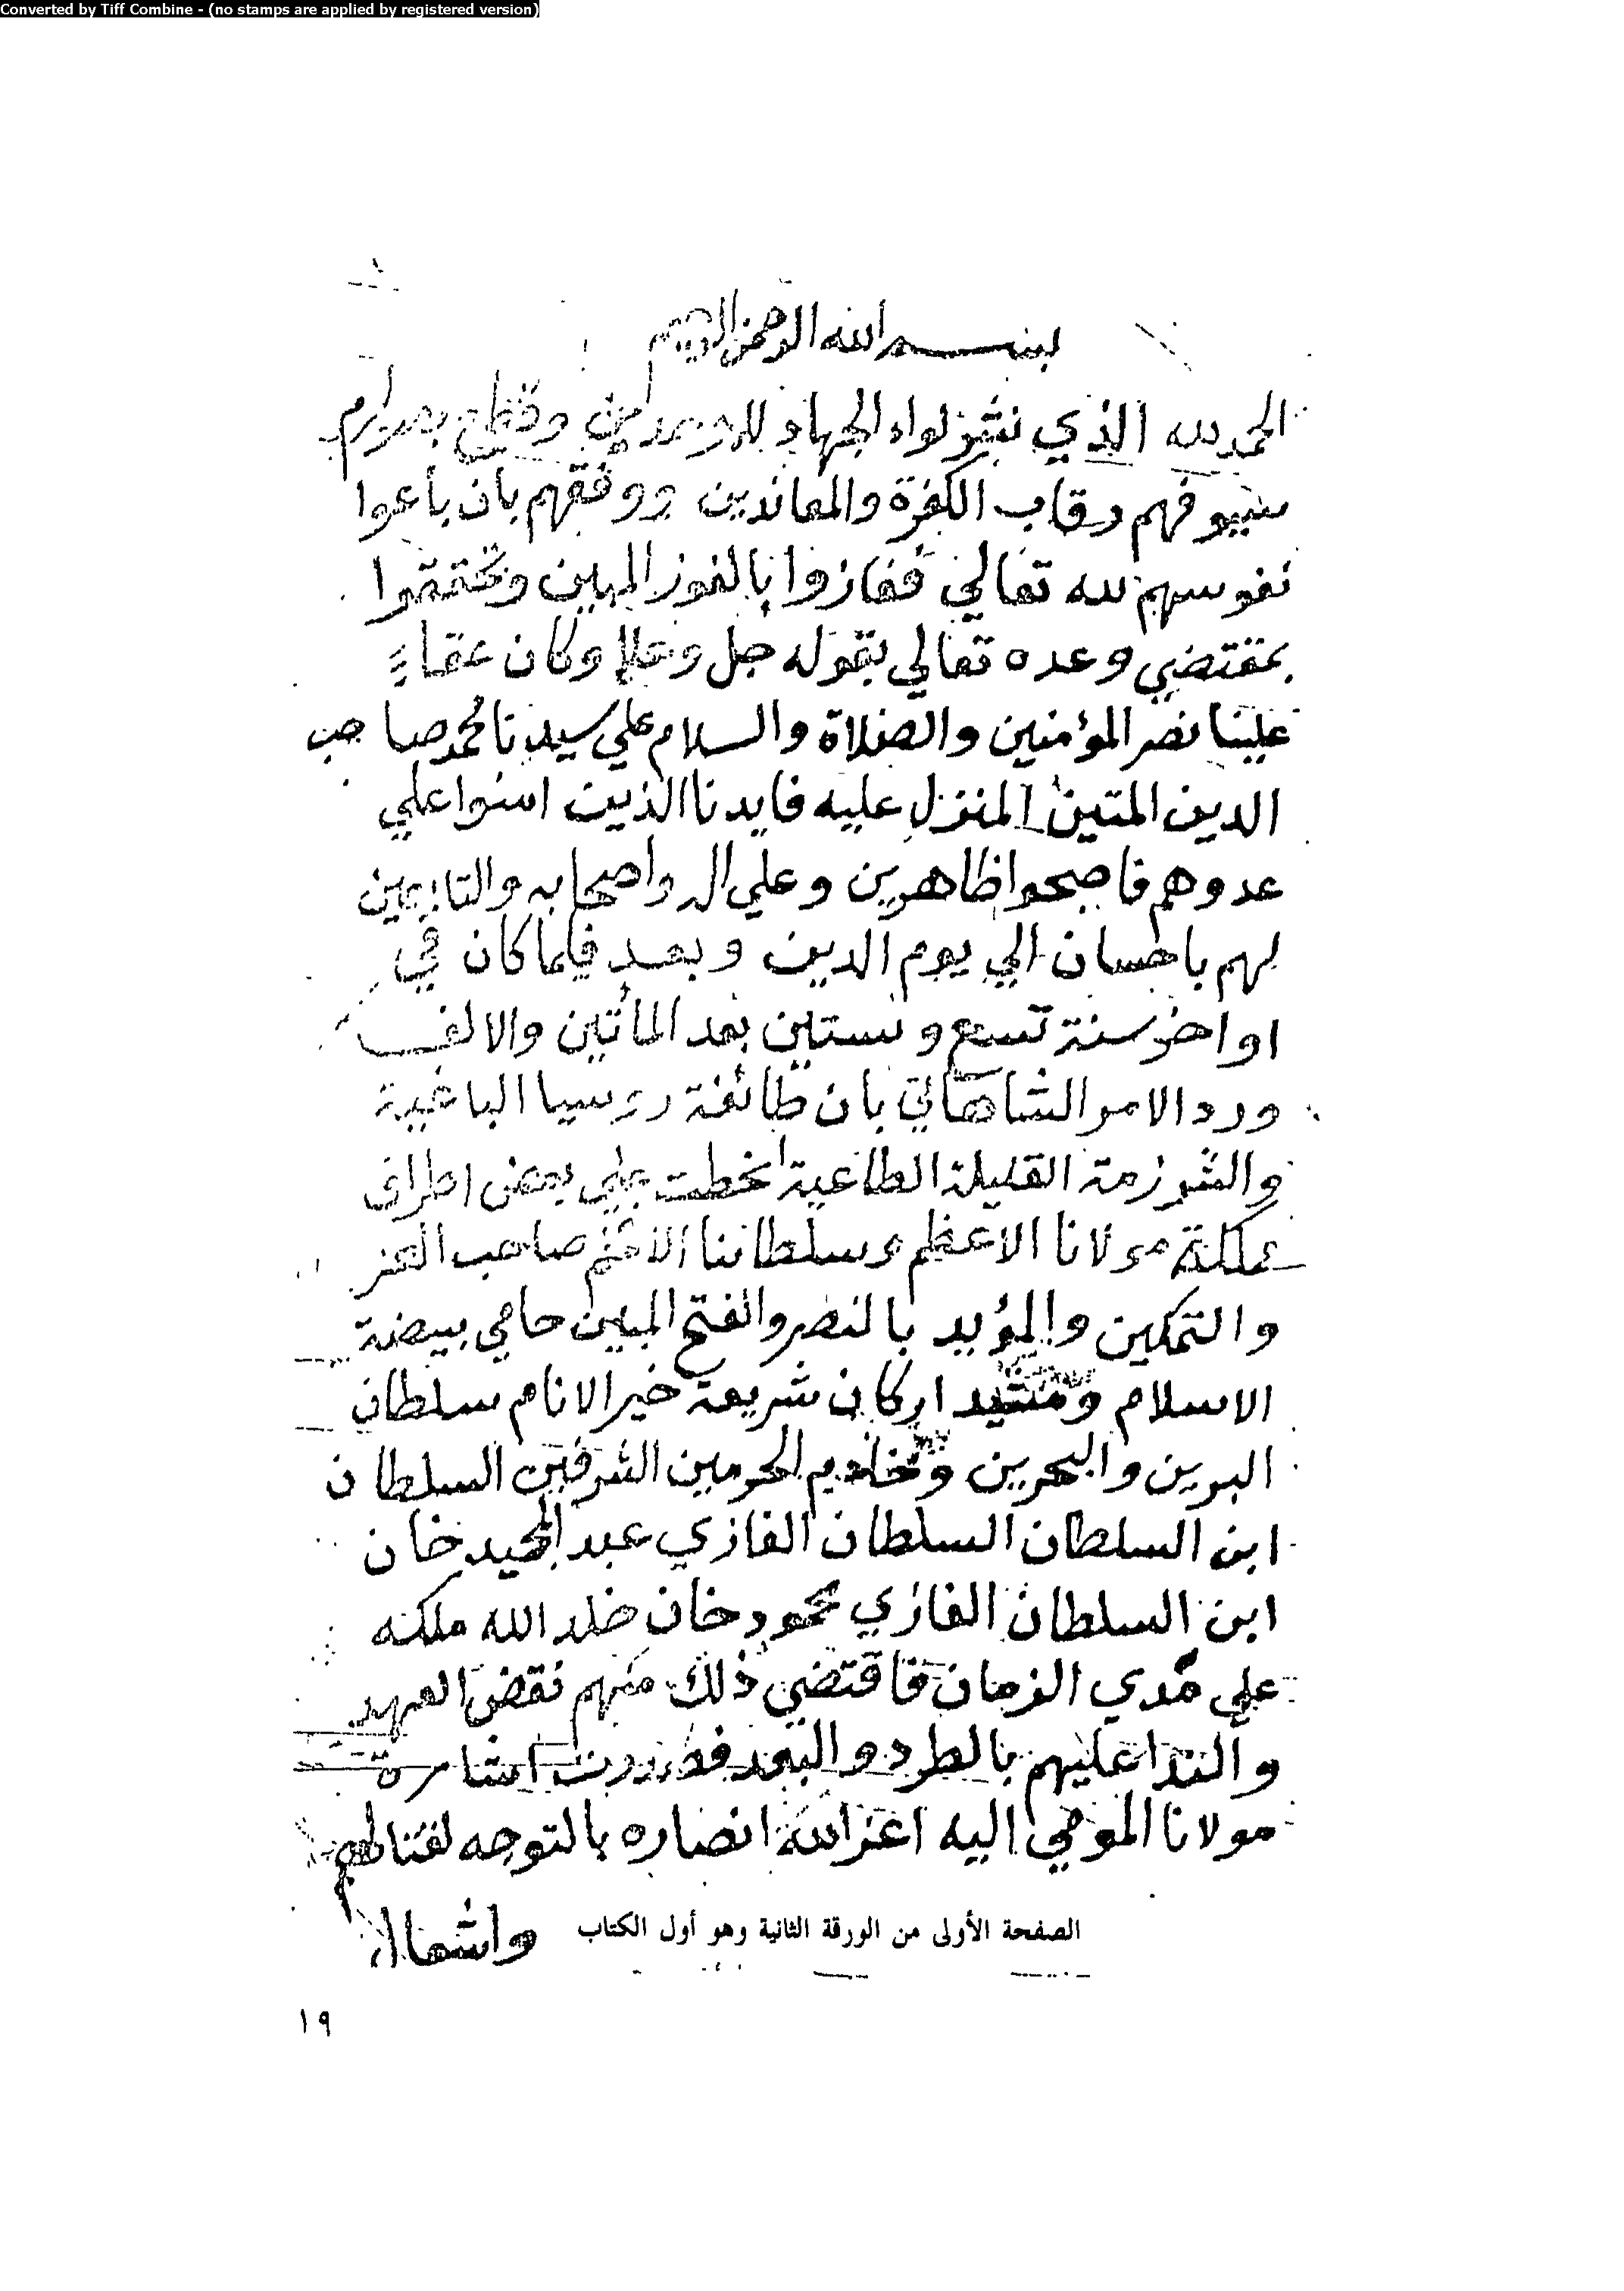 Converted by Tiff Combine - (no stamps are applied by registered version)
بسم الله الرحمن الرحيم
الحمد لله الذي نشر لواء الجهاد وقطع بصوارم
سيوفهم رقاب الكفرة والمعاندين ووفقهم بان باعوا
نفوسهم لله تعالي ففازوا بالفوز المبين وتحققوا
بمقتضي وعده تعالي بقوله جل وعلا وكان حقا
علينا نصر المؤمنين والصلاة والسلام علي سيدنا محمد صاحب
الدين المتين المنزل عليه فايدنا الذين امنوا علي
عدوهم فاصبحوا ظاهرين وعلي اله واصحابه والتابعين
لهم باحسان الي يوم الدين وبعد فلما كان في
اواخر سنة تسع وستين بعد المأتين والالف
ورد الامر الشاهاني بان طائفة روسيا الباغية
والشرزمة القليلة الطاغية تخطت علي بعض اطراف
مملكة مولانا الاعظم وسلطاننا الافخم صاحب العز
والتمكين والمؤيد بالنصر والفتح المبين حامي بيضة
الاسلام ومشيد اركان شريعة خير الانام سلطان
البرين والبحرين وخادم الحرمين الشرفين السلطان
ابن السلطان السلطان الغازي عبد المجيد خان
ابن السلطان الغازي محمود خان خلد الله ملكه
علي مدي الزمان فاقتضي ذلك منهم نقض العهد
والندا عليهم بالطرد والبعد فصدرت اشارة
مولانا المومي اليه اعز الله انصاره بالتوجه لقتالهم
واشعال
الصفحة الأولى من الورقة الثانية وهو أول الكتاب
١٩